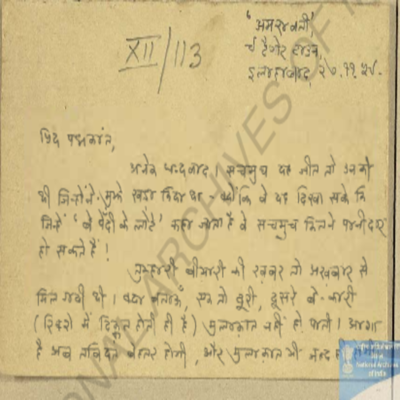 XII/113
'अमरावती'
टैगोर टाउन,
इलाहाबाद, २७.११.५८.
प्रिय पद्मकांत,
अनेक धन्यवाद। सचमुच यह जीत तो उनकी
थी जिन्होंने मुझे खड़ा किया था - क्योंकि वे यह दिखा सके कि
जिन्हें 'बे पेंदी के लोटे' कहा जाता है वे सचमुच कितने पानीदार
हो सकते हैं!
तुम्हारी बीमारी की खबर तो अखबार से
मिल गयी थी। क्या बताऊँ, एक तो दूरी, दूसरे बेकारी
(जिसमें होती ही है) मुलाक़ात नहीं हो पाती। आशा
है अब तबियत बेहतर होगी, और मुलाक़ात भी
NATIONAL ARCHIVES OF